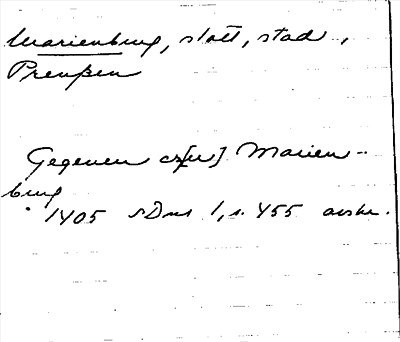 Marienburg, slott, stad,
Preußen
Gegeven cz[u] Marien-
burg
1405 SDns 1, s. 455 avskr.